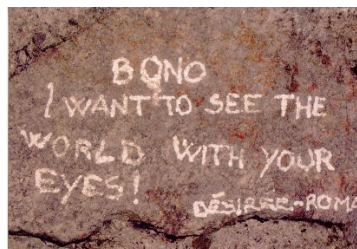 BONO
I WANT TO SEE THE
WORLD WITH YOUR
EYES!
DÉSIRÉE-ROMA